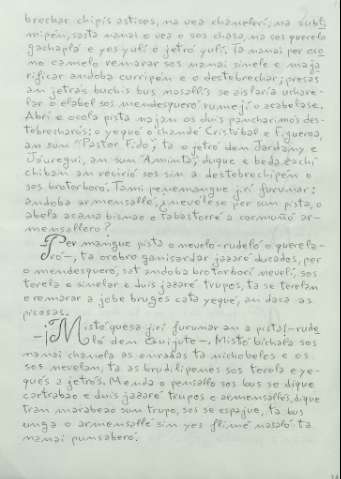 brochar chipís astisos, na vea chamferí; na subli
mipén, sasta nanai o vea o sos chasa, na sos querela
gachapla e yes yulí o jetró yulí. Ta nanai per oco
no camelo remarar sos nanai sinele e maja
rificar andoba curripen e o destebrechar; presas
an jetrás buchis bus nasallís se aislaría
lar o elabel sos mendesquero rumejí o acabelase.
Abrí e ocola pista najan os duis pancharimos des
tebrecharós: o yequé o chandé Cristóbal e Figueroa,
an sun "Pastor Fido", ta o jetró dem Jardany e
Jáuregui, an sun "Aminta", duque e beda
chiban an o sos sin a destebrechipen o
sos brotorboró. Tami penemangue jirí furunar:
andoba armensallé, ¿nevelese per sun pista, o
abela acana bisnae o tabastorré a cormuñó ar-
mensallero?
—Per mangue pista o nevelo —rudeló o querela-
ró—, ta orobro ganisardar jazaré ducados, per
o mendesqueró, sat andoba brotorborí nevelí, sos
terela e sinelar e duis jazaré trupos, ta se terelan
e remarar a jobe brugés cata yeque, an daca as
picosas.
—¡Misto quesa jirí furunar an a pista! —rude
ló dem Cauijote—. Misto bichola sos
nanai chanela as onradas ta nichobeles e os
sos nevelan, ta as brudiliponés sos terela e ye-
qués a jetrós. Menda o pensallo sos bus se dique
cartrabao e duis jazaré trupos o armensallés, dique
tran marabeao sun trupo, sos se espajue, ta bus
unga o armensallé sin yes flimé nasaló ta
nanai punsaberó.